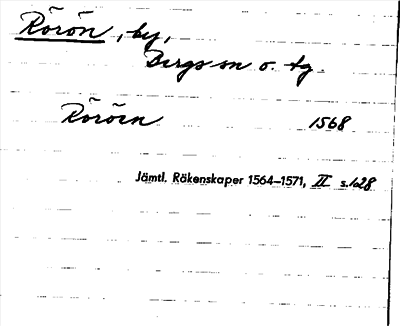 Rörön, by,
Bergs sn o. tg.
Röröen 1568
Jämtl. Räkenskaper 1564–1571, II s.128